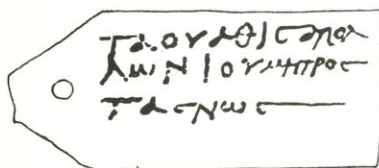 ΤΑΟΥΑΘΙϹΑΠΟΛ
ΛΩΝΙΟΥΜΗΤΡΟϹ
ΤΑϹΝΩϹ